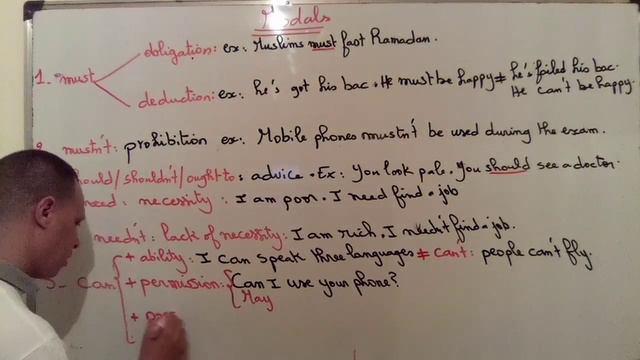 Modals
obligation: ex: Muslims must fast Ramadan.
1. must
deduction: ex: he's got his bac. He must be happy ≠ he's failed his bac.
He can't be happy.
mustn't: prohibition ex: Mobile phones mustn't be used during the exam.
should/shouldn't/ought to: advice. Ex: You look pale. You should see a doctor.
need: necessity: I am poor. I need find a job
needn't: lack of necessity: I am rich. I needn't find a job.
+ ability: I can speak three languages ≠ can't: people can't fly.
can
+ permission: Can I use your phone?
May
+